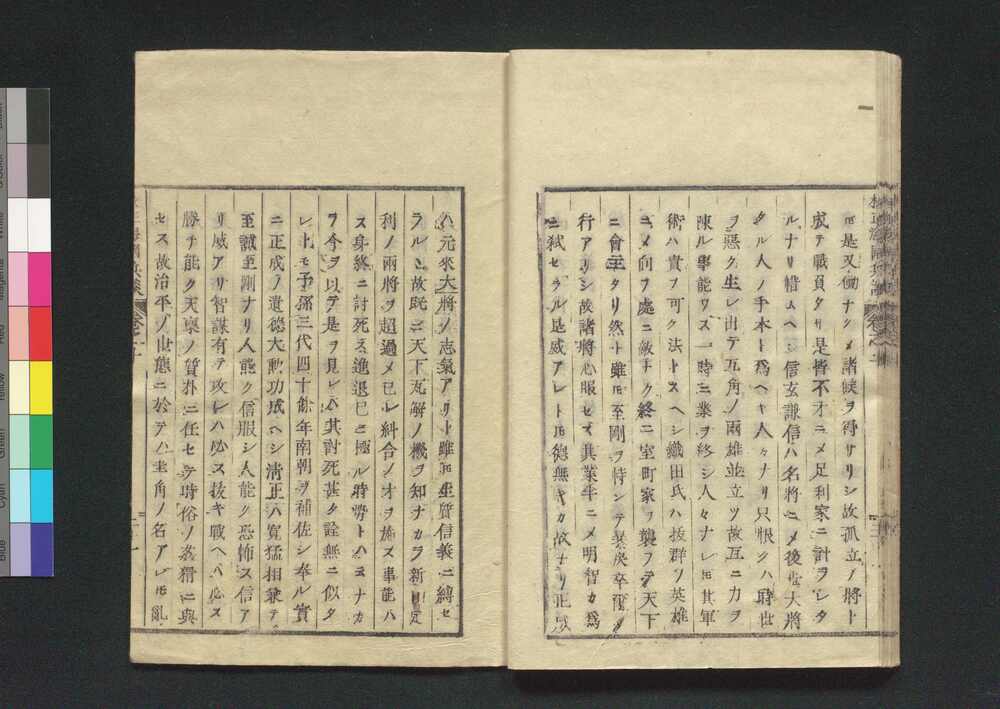 ㆑𪜈是又働ナクメ諸候ヲ得サリシ故孤立ノ將ト
成テ職員タリ是皆不才ニメ足利家ニ計ヲレタ
ルナリ惜ムヘシ信玄謙信ハ名將ニメ後世大將
タル人ノ手本ト爲ヘキ人々ナリ只恨クハ時世
ヲ惡ク生レ出テ互角ノ兩雄並立ツ故互ニ力ヲ
陳ル事能ワス一時ニ業ヲ終シ人々ナレ𪜈其軍
術ハ貴フ可ク法トスヘシ織田氏ハ抜群ノ英雄
ニメ向フ處ニ敵ナク終ニ室町家ヲ襲フテ天下
ニ會主タリ然ト雖𪜈至剛ヲ恃シテ暴戾卒爾ノ
行アリシ故諸將心服セズ其業半ニメ明智カ爲
ニ弑セラル是威アレト𪜈德無キカ故ナリ正成
ハ元來大將ノ志氣アリト雖𪜈生質信義ニ縛セ
ラル故既ニ天下瓦解ノ機ヲ知ナカラ新田足
利ノ兩將ヲ超過メ己レ糾合ノオヲ施ス事能ハ
ス身終ニ討死ス進退已ニ極ル時勢トハ云ナカ
ラ今ヲ以テ是ヲ見レハ其討死甚タ詮無ニ似タ
レ𪜈子孫三代四十餘年南朝ヲ補佐シ奉ル實
ニ正成ノ遺德大勲功成ヘシ淸正ハ寛猛相兼テ
至誠至剛ナリ人能ク信服シ人能ク恐怖ス信ア
リ威アリ智謀有テ攻レハ必ス抜キ戰ヘハ必ス
勝チ能ク天稟ノ質朴ニ任セテ時俗ノ姦猾ニ與
セス故治平ノ世態ニ於テハ圭角ノ名アレ𪜈亂